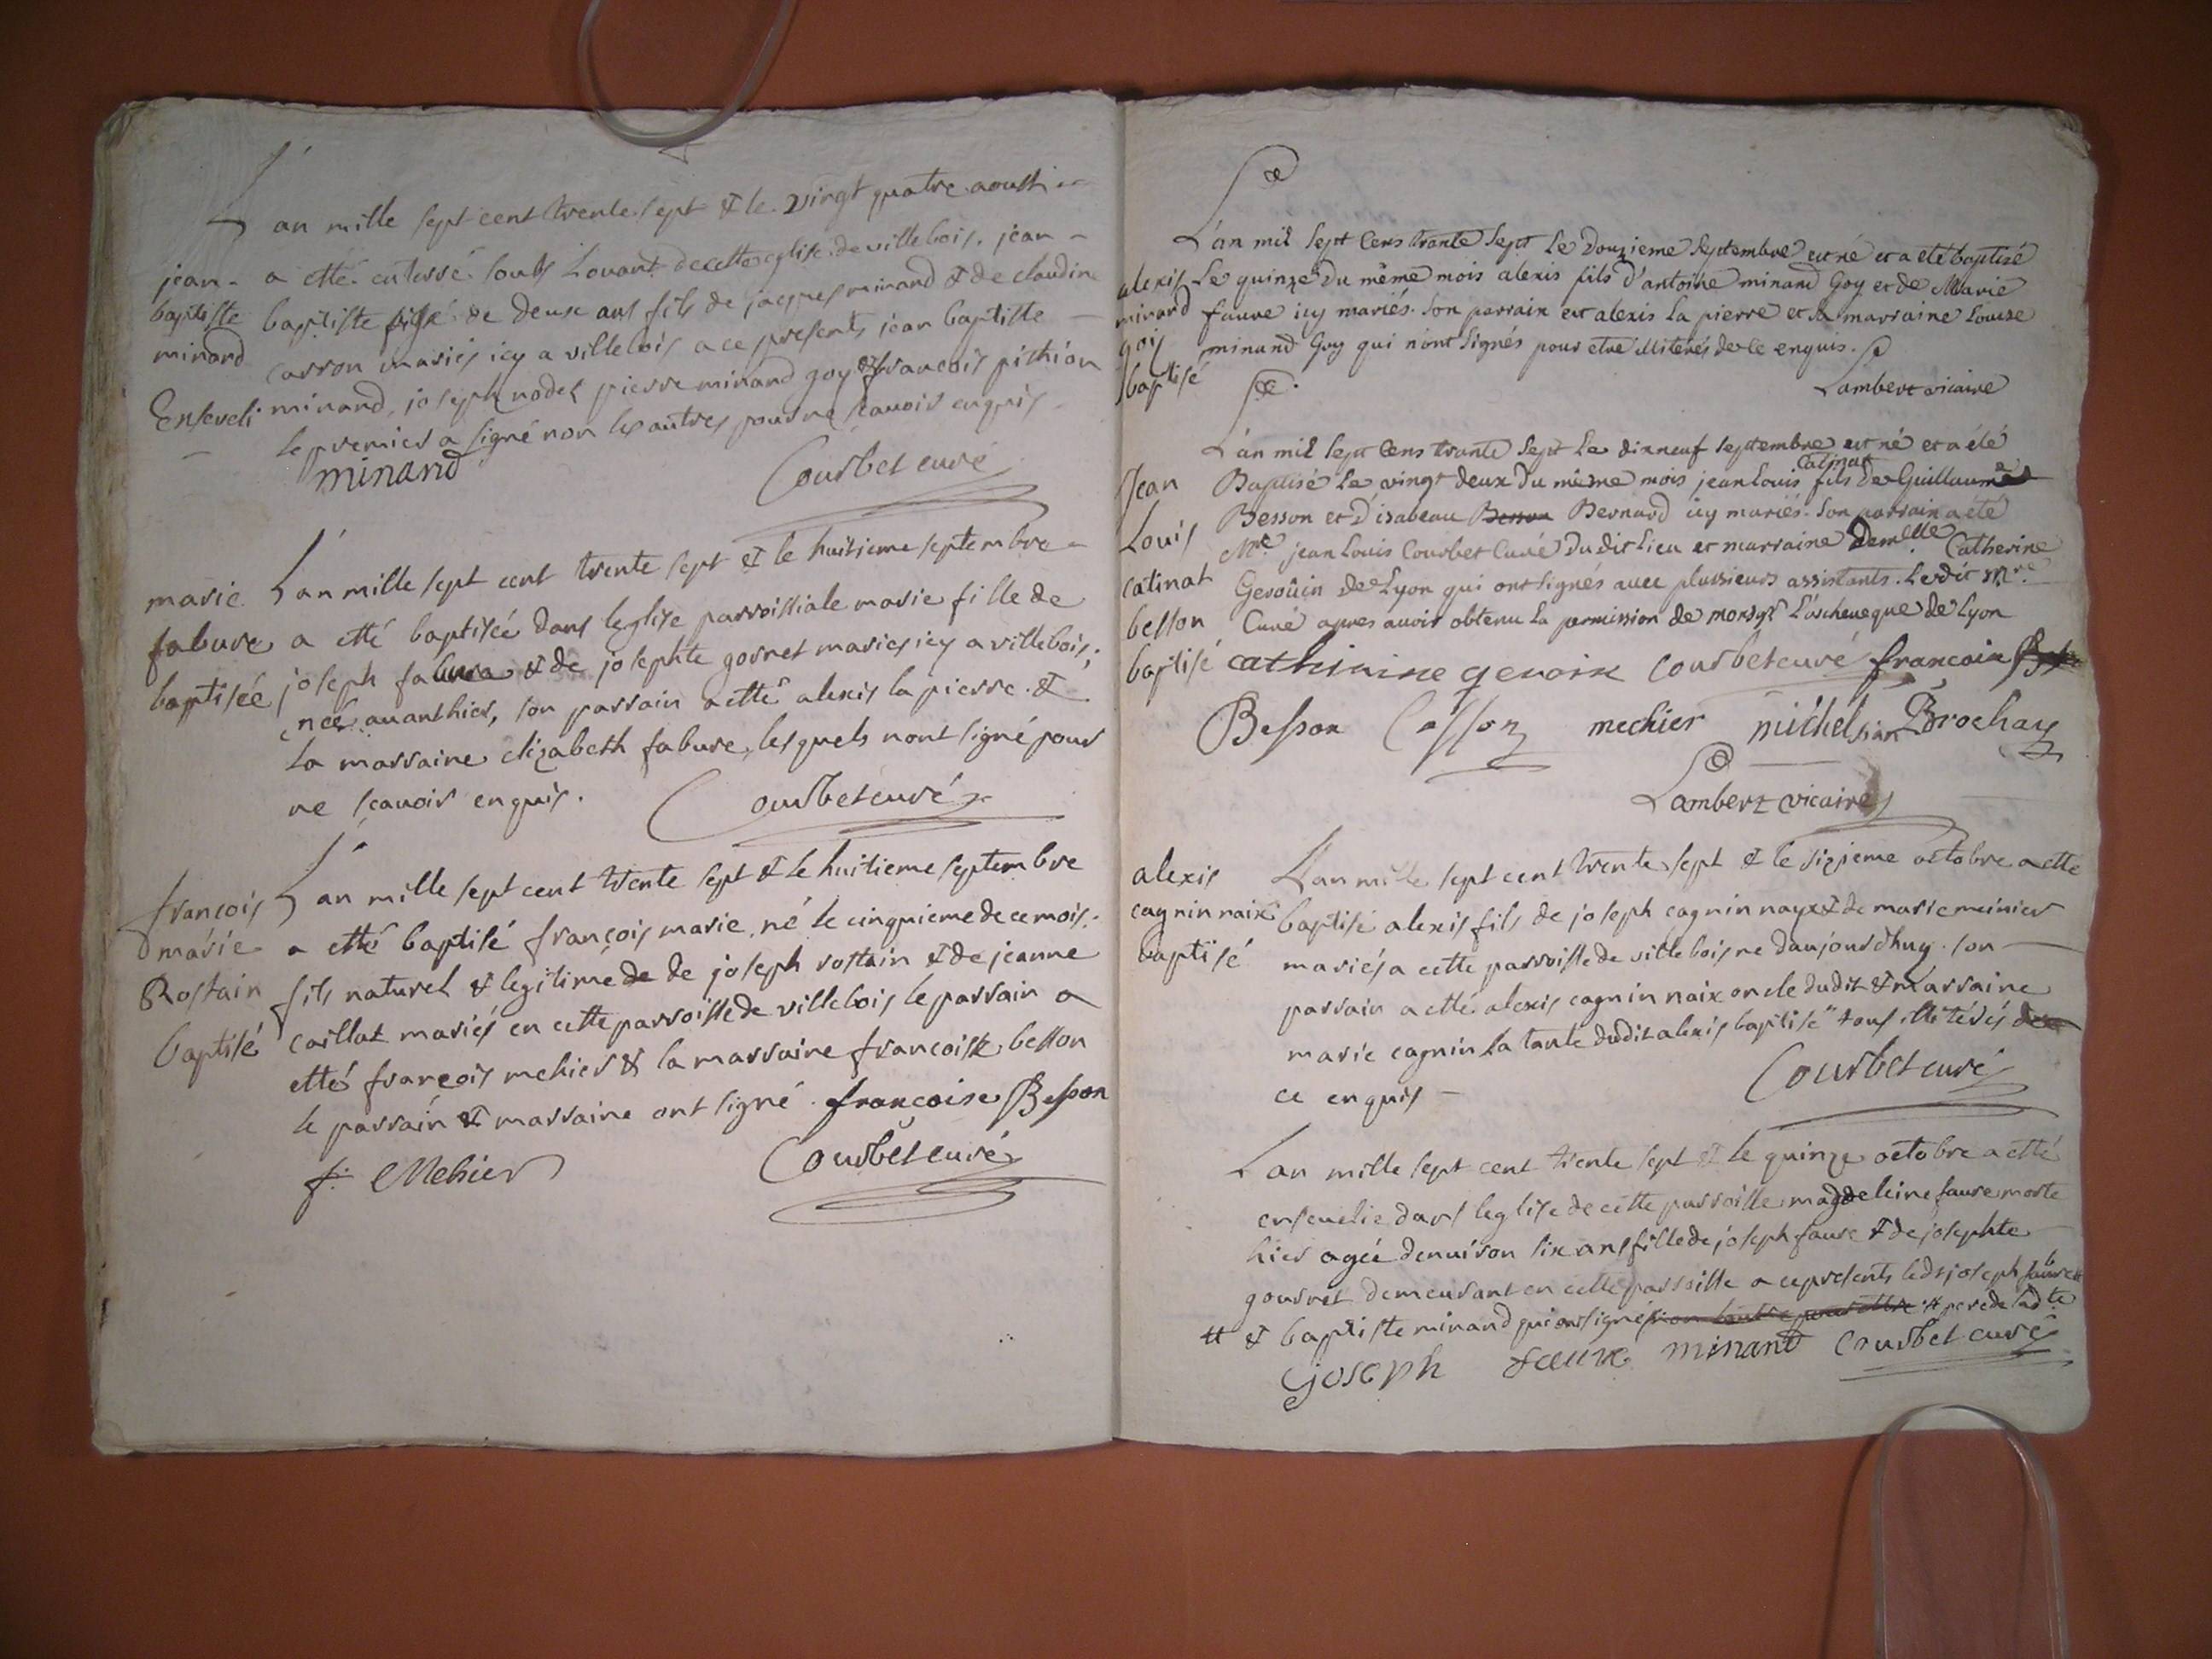 Lan mille sept cent trente sept & le vingt quatre aoust
jean - a etté enterré soubs Lovant de cette eglise de villebois, jean -
baptiste baptiste agé de deux ans fils de jacques minand & de claudine
minand carron mariés icy a villebois a ce presents jean baptiste
Enseveli minand, joseph nodet pierre minand goy & francois pithion
le premier a signé non les autres pour ne scavoir enquis
minand Courbet curé
marie Lan mille sept cent trente sept & le huitieme septembre -
fabure a etté baptisée dans leglise parroissiale marie fille de
baptisée joseph fabure & de josephte gorret mariés icy a villebois;
née avanthier, son parrain a etté alexis la pierre &
la marraine elizabeth fabure, lesquels nont signé pour
ne sçavoir enquis. Courbet curé
françois Lan mille sept cent trente sept & le huitieme septembre
marie a etté baptisé françois marie, né le cinquieme de ce mois
Rostain fils naturel & legitime de de joseph rostain & de jeanne
baptisé caillat mariés en cette parroisse de villebois le parrain a
etté françois mehier & la marraine francoise besson
le parrain & marraine ont signé. francoise Besson
f. Mehier Courbet curé
L'an mil sept Cens trante sept Le Douzieme septembre est né et a eté baptisé
alexis Le quinze du même mois alexis fils d'antoine minand Goy et de Marie
minand faure icy mariés. Son parrain est alexis La pierre et sa marraine Louise
gois minand Goy qui n'ont signés pour etre illiterés de ce enquis.
baptisé Lambert vicaire
L'an mil sept Cens trante sept Le dixneuf septembre est né et a été
Jean Baptisé Le vingt deux du même mois jean Louis Catinat fils de Guillaume
Louis Besson et d'isabeau Besson Bernard icy mariés. Son parrain a eté
Mre jean Louis Courbet Curé du dit Lieu et marraine Demelle Catherine
catinat Gerouin de Lyon qui ont signés avec plussieurs assistants. Ledit Mre
besson Curé apres avoir obtenu La permission de monsgr L'archeveque de Lyon
baptisé cathirine geroix courbet curé francoix
Besson Casson mechier michel sian Brochay
Lambert vicaire
alexis Lan mille sept cent trente sept & le sizieme octobre a etté
cagnin naix baptisé alexis fils de joseph cagnin nayx & de marie meinier
baptisé mariés a cette parroisse de villebois ne daujourdhuy. son
parrain a etté alexis cagnin naix oncle dudit & marraine
marie cagnin la tante dudit alexis baptisé tous illitérés de
ce enquis - Courbet curé
Lan mille sept cent trente sept & le quinze octobre a etté
ensevelie dans leglise de cette parroisse magdeleine faure morte
hier agée denviron six ans fille de joseph faure & de josephte
gourret demeurant en cette parroisse a ce presents ledt joseph fabure #
# & baptiste minand qui ont signé non lautre pour estre # pere de ladte
joseph faure minand Courbet curé